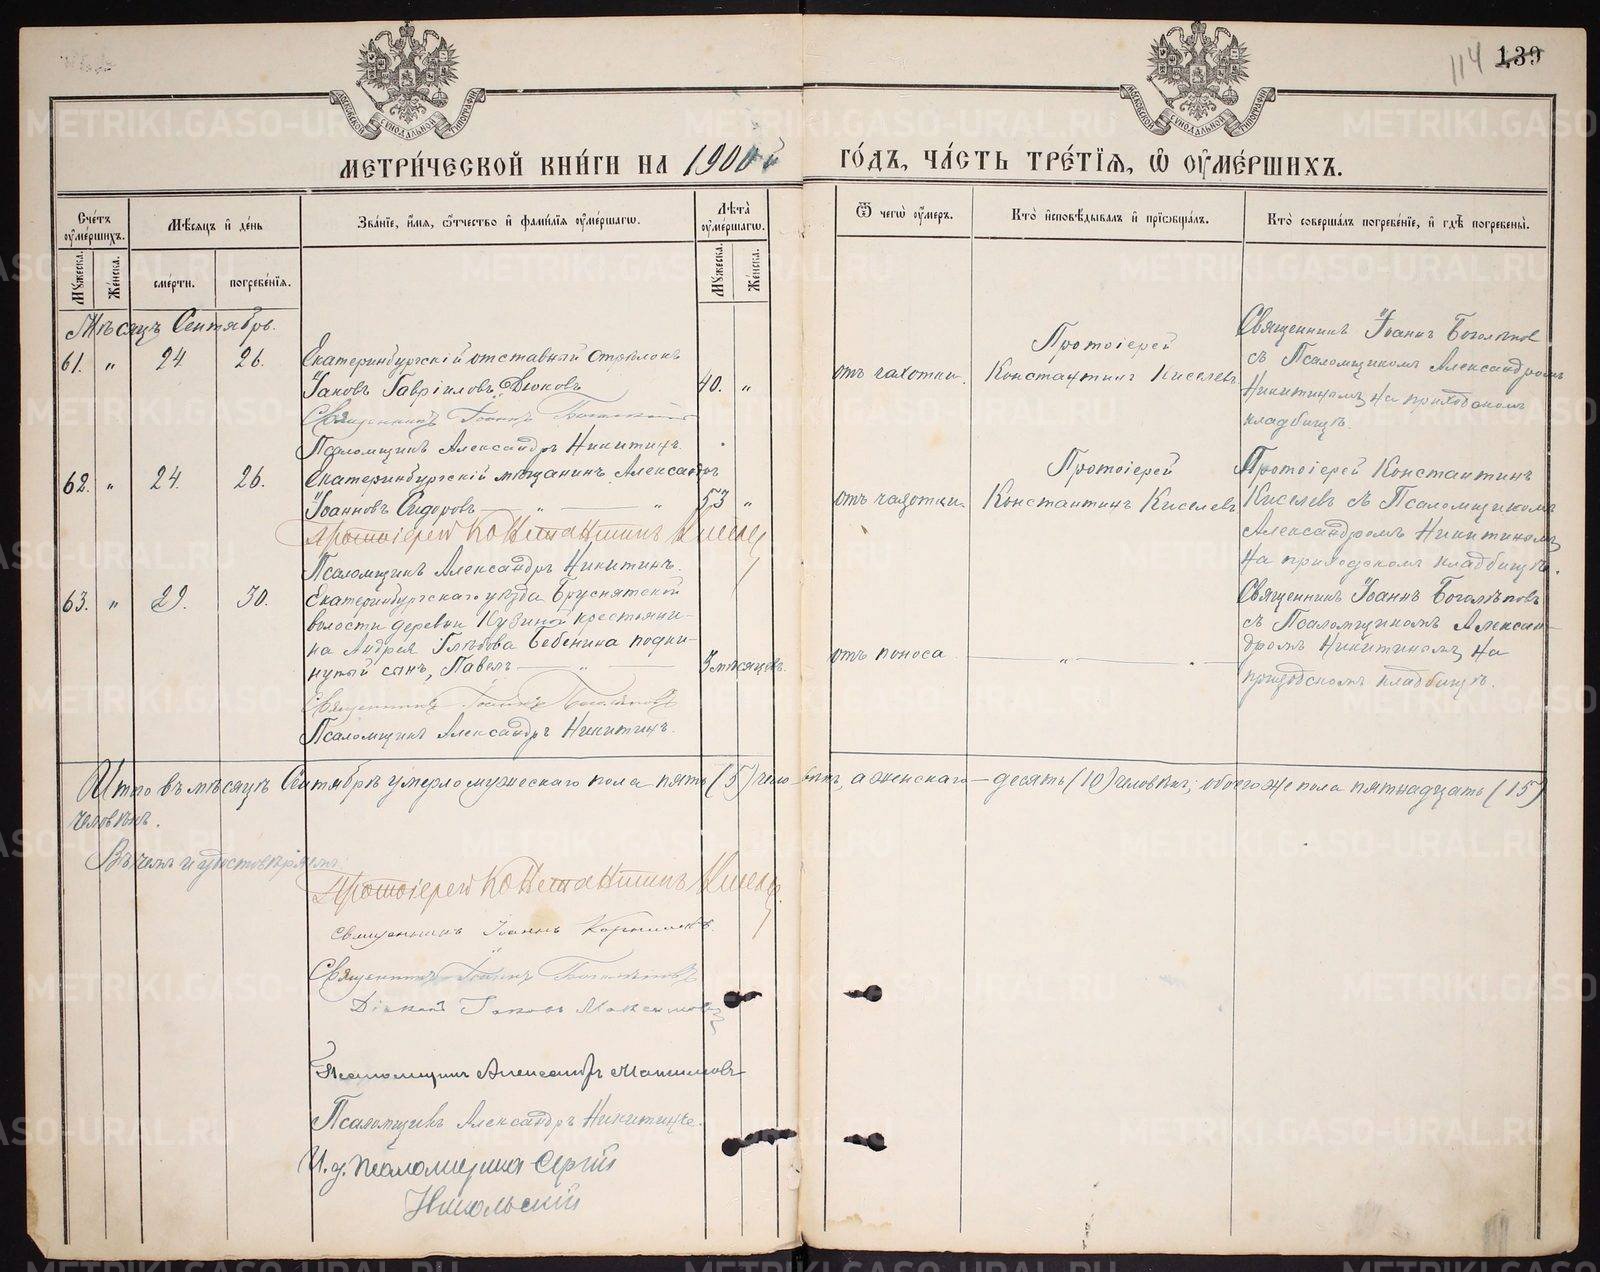 114 139
МОСКОВСКОЙ СѴНОДАЛЬНОЙ ТИПОГРАФІИ
МОСКОВСКОЙ СѴНОДАЛЬНОЙ ТИПОГРАФІИ
МЕТРИ́ЧЕСКОЙ КНИ́ГИ НА 1900й ГО́ДЪ, ЧА́СТЬ ТРЕ́ТІЯ, Ѽ ОУ҆МЕ́РШИХЪ.
Сче́тъ оу҆ме́ршихъ.
Мꙋжеска.
Же́нска.
Мѣ́сяцъ и҆ де́нь
сме́рти.
погребе́нїя.
Зва́нїе, и҆́мя, ѻ҆́тчество и҆ фами́лїя оу҆ме́ршагѡ.
Лѣ́та оу҆ме́ршагѡ.
Мꙋжеска.
Же́нска.
Ѿ чегѡ̀ оу҆́меръ.
Кто̀ и҆сповѣ́дывалъ и҆ прїѻбща́лъ.
Кто̀ соверша́лъ погребе́нїе, и҆ гдѣ̀ погребены̀.
Мѣсяцъ Сентябрь.
61. " 24 26.
Екатеринбургскій отставный стрѣлокъ
Іаковъ Гавріиловъ Дюковъ
40. "
Священникъ Іоаннъ Боголѣповъ
Псаломщикъ Александръ Никитинъ.
отъ чахотки.
Протоіерей
Константинъ Киселевъ
Священникъ Іоаннъ Боголѣповъ
съ Псаломщикомъ Александромъ
Никитинымъ, на приходскомъ
кладбищѣ.
62. " 24. 26.
Екатеринбургскій мѣщанинъ Александръ
Іоанновъ Сидоровъ — " — "
53 "
Протоіерей Константинъ Киселевъ
Псаломщикъ Александръ Никитинъ.
отъ чахотки.
Протоіерей
Константинъ Киселевъ
Протоіерей Константинъ
Киселевъ съ Псаломщикомъ
Александромъ Никитинымъ,
на приходскомъ кладбищѣ.
63. " 29. 30.
Екатеринбургскаго уѣзда Бруснятской
волости деревни
крестьяни-
на Андрея Глѣбова Бебенина подки-
нутый сынъ, Павелъ — " —
3 мѣсяцовъ.
Священникъ Іоаннъ Боголѣповъ
Псаломщикъ Александръ Никитинъ.
отъ поноса
— " —
Священникъ Іоаннъ Боголѣповъ
съ Псаломщикомъ Алексан-
дромъ Никитинымъ, на
приходскомъ кладбищѣ.
Итого въ мѣсяцѣ Сентябрѣ умерло мужескаго пола пять (5) человѣкъ, а женскаго — десять (10) человѣкъ; обоего же пола пятнадцать (15)
человѣкъ.
Въ чемъ и удостовѣряемъ:
Протоіерей Константинъ Киселевъ
Священникъ Іоаннъ
Священникъ Іоаннъ Боголѣповъ
Діаконъ Іаковъ Максимовъ
Псаломщикъ Александръ Максимовъ
Псаломщикъ Александръ Никитинъ.
И. д. псаломщика Сергій
Никольскій
METRIKI.GASO-URAL.RU